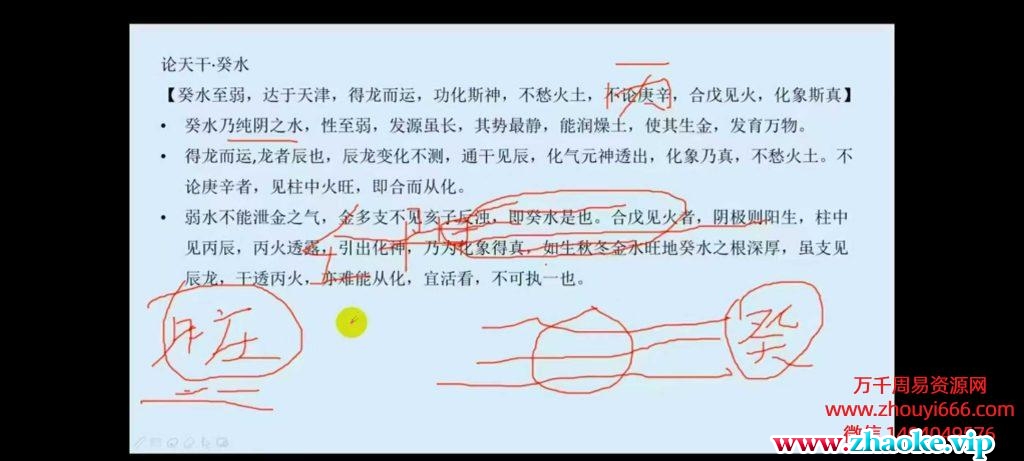 论天干·癸水
【癸水至弱，达于天津，得龙而运，功化斯神，不愁火土，不论庚辛，合戊见火，化象斯真】
• 癸水乃纯阴之水，性至弱，发源虽长，其势最静，能润燥土，使其生金，发育万物。
• 得龙而运,龙者辰也，辰龙变化不测，通干见辰，化气元神透出，化象乃真，不愁火土。不
论庚辛者，见柱中火旺，即合而从化。
• 弱水不能泄金之气，金多支不见亥子反浊，即癸水是也。合戊见火者，阴极则阳生，柱中
见丙辰，丙火透露，引出化神，乃为化象得真，如生秋冬金水旺地癸水之根深厚，虽支见
辰龙，干透丙火，亦难能从化，宜活看，不可执一也。
癸
万千周易资源网
www.zhouyi666.com
微信
www.zhaoke.vip